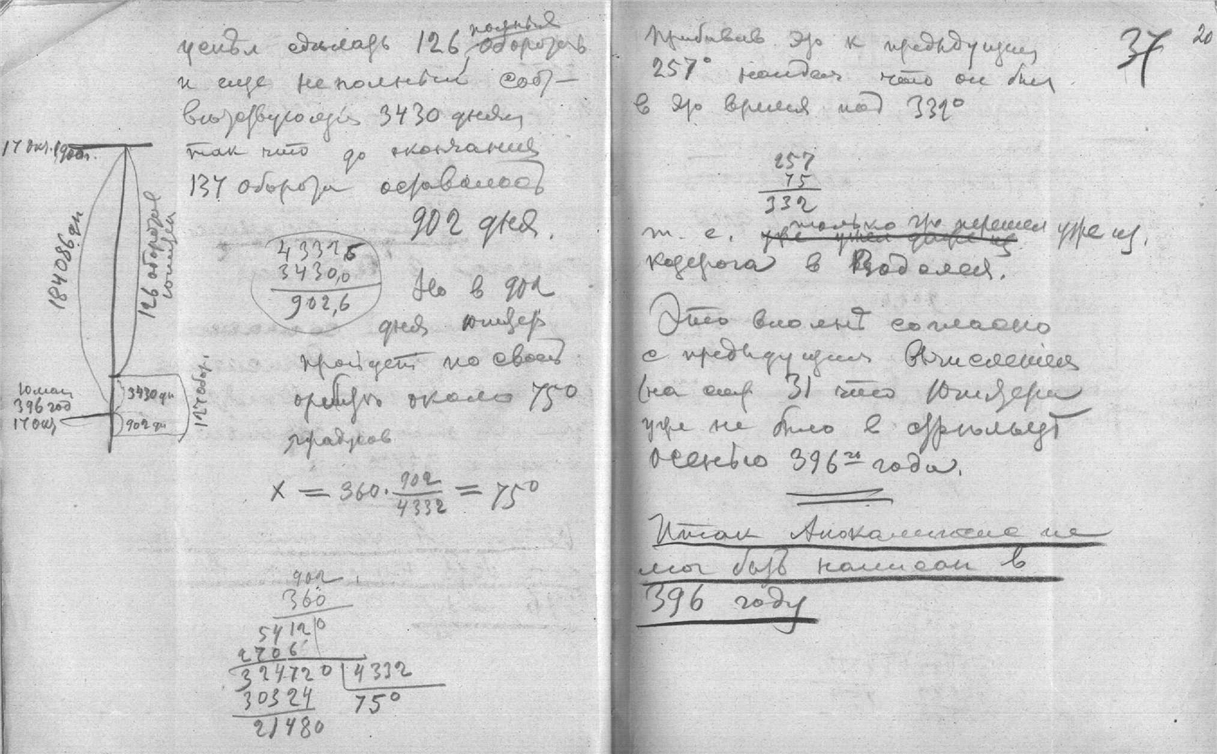 успѣл сдѣлать 126 полныя оборотов
и еще неполный соот-
вѣтствующій 3430 дням
так что до окончания
137 оборота оставалось
902 дня.
17 окт. 1900г.
184086 дн
126 оборотов
Юпитера
3430 дн
902 дн
127 обор.
396 год
17 окт
4332,6
3430,0
902,6
Но в 902
дня Юпитер
пройдет по своей
орбитѣ около 75°
градусов
X = 360 · 902/4332 = 75°
902
360
5412 0
2706
324720 | 4332
30324 75°
21480
37 20
Прибавив это к предыдущим
257° найдем что он был
в это время под 332°
257
75
332
т. е. только что перешел уже из
козерога в Водолея.
Это вполнѣ согласно
с предыдущим вычислением
(на стр 31 что Юпитера
уже не было в стрѣльцѣ
осенью 396го года.
Итак Апокалипсис не
мог быть написан в
396 году